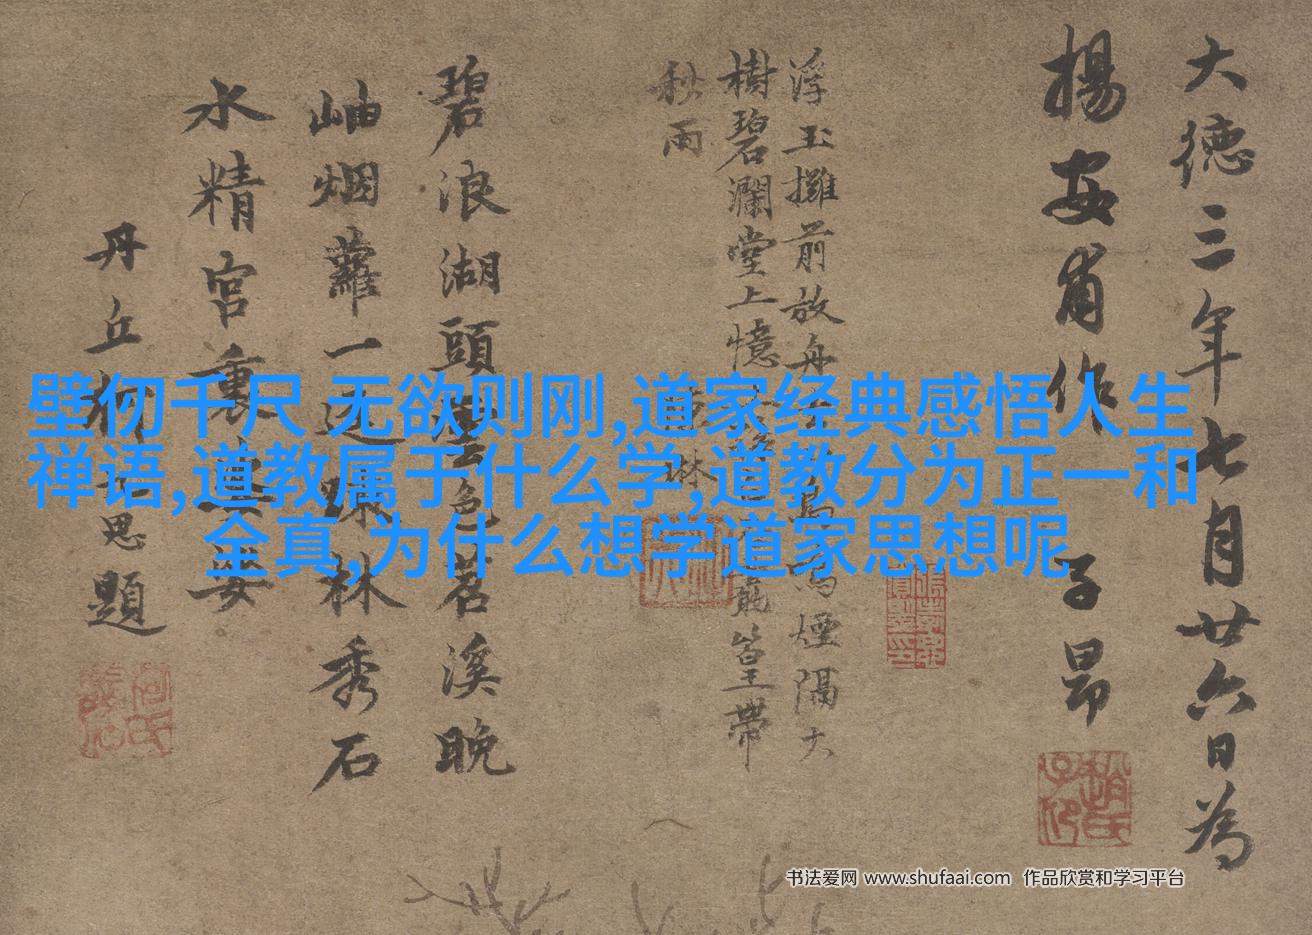 大德三年七月廿六日為
揚安甫作 子昂
浮玉攤前放舟 煙隔大
樹碧瀾堂上憶 篁帶
秋雨
林
碧浪湖頭雲色茗溪晚
岫烟蘿一逕疎林秀石
水精宮裏
丹丘柯 思題
壁仞千尺 无欲则刚,道家经典感悟人生
禅语,道教属于什么学,道教分为正一和
全真,为什么想学道家思想呢
书法爱网 www.shufaai.com 作品欣赏和学习平台